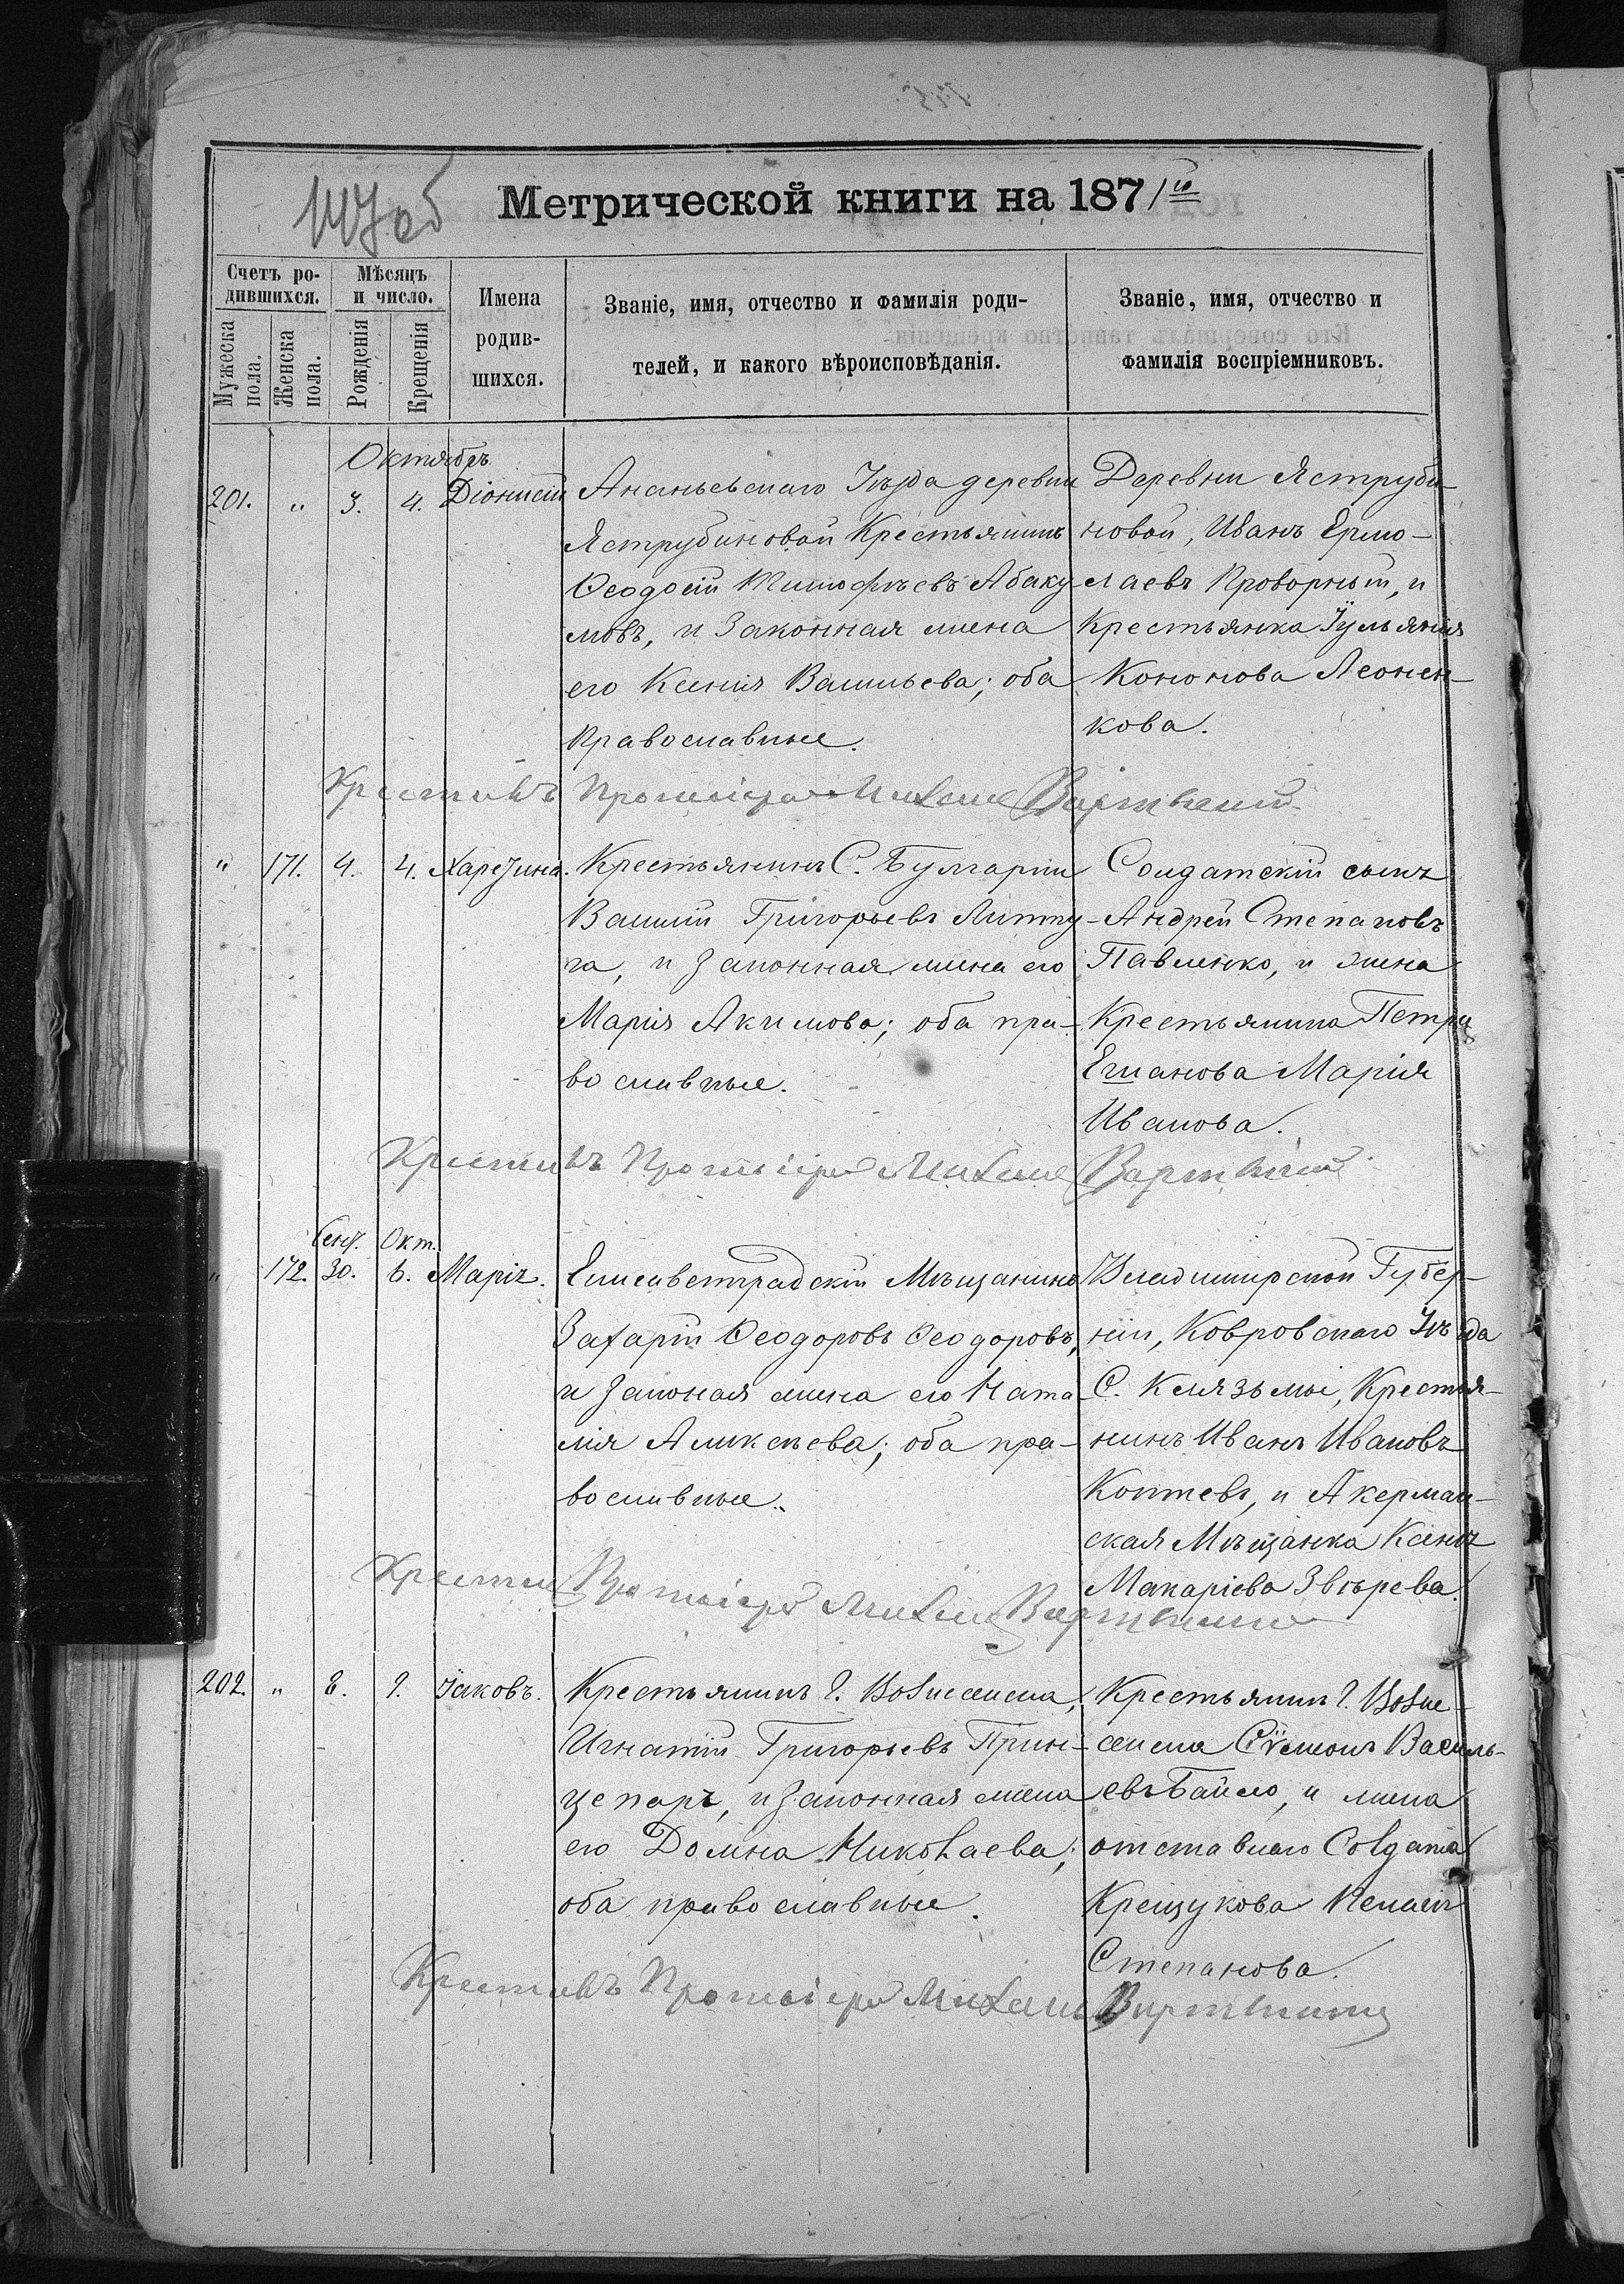 147 об
Метрической книги на 1871й
Счетъ ро-
дившихся.
Мѣсяцъ
и число.
Мужеска
пола.
Женска
пола.
Рожденія
Крещенія
Имена
родив-
шихся.
Званіе, имя, отчество и фамилія роди-
телей, и какого вѣроисповѣданія.
Званіе, имя, отчество и
фамилія воспріемниковъ.
Октябрь
201. " 3. 4. Діонисій
Ананьевскаго Уѣзда деревни
Яструбиновой Крестьянинъ
Ѳеодосій Тимофѣевъ Абаку
мовъ, и Законная жена
его Ксенія Васильева; оба
Православные.
Деревни Яструби-
новой, Иванъ Ермо-
лаевъ Проворный, и
Крестьянка Іуліанія
Кононова Леонен-
кова.
Крестилъ Протоіерей Михаил
" 171. 4. 4. Харетина.
Крестьянинъ С. Булгарии
Василій Григорьевъ Липту-
га, и законная жена его
Марія Акимова; оба пра-
вославные.
Солдатскій сынъ
Андрей Степановъ
Павленко, и жена
Крестьянина Петра
Ешанова Марія
Иванова.
Крестилъ Протоіерей Михаил
Сент. Окт.
" 172. 30. 6. Марія.
Елисаветградскій Мѣщанинъ
Захарій Ѳеодоровъ Ѳеодоровъ,
и законая жена его Ната
лія Аликѣева; оба пра-
вославные.
Владимирской Губер-
ніи, Ковровскаго Уѣзда
С. Клязьмы, Крестья-
нинъ Иванъ Ивановъ
Коптевъ, и Акерман-
ская Мѣщанка Ксенія
Макаріева Звѣрева.
Крестил Протоіерей Михаил
202. " 8. 9. Іаковъ.
Крестьянинъ г. Вознесенска,
Игнатій Григорьевъ Прин-
цепаръ, и законная жена
его Домна Николаева;
оба православные.
Крестьянинъ г. Возне-
сенска Сѵмеонъ Василь-
евъ Байло, и жена
отставнаго Солдата
Крещукова
Степанова.
Крестилъ Протоіерей Михаил